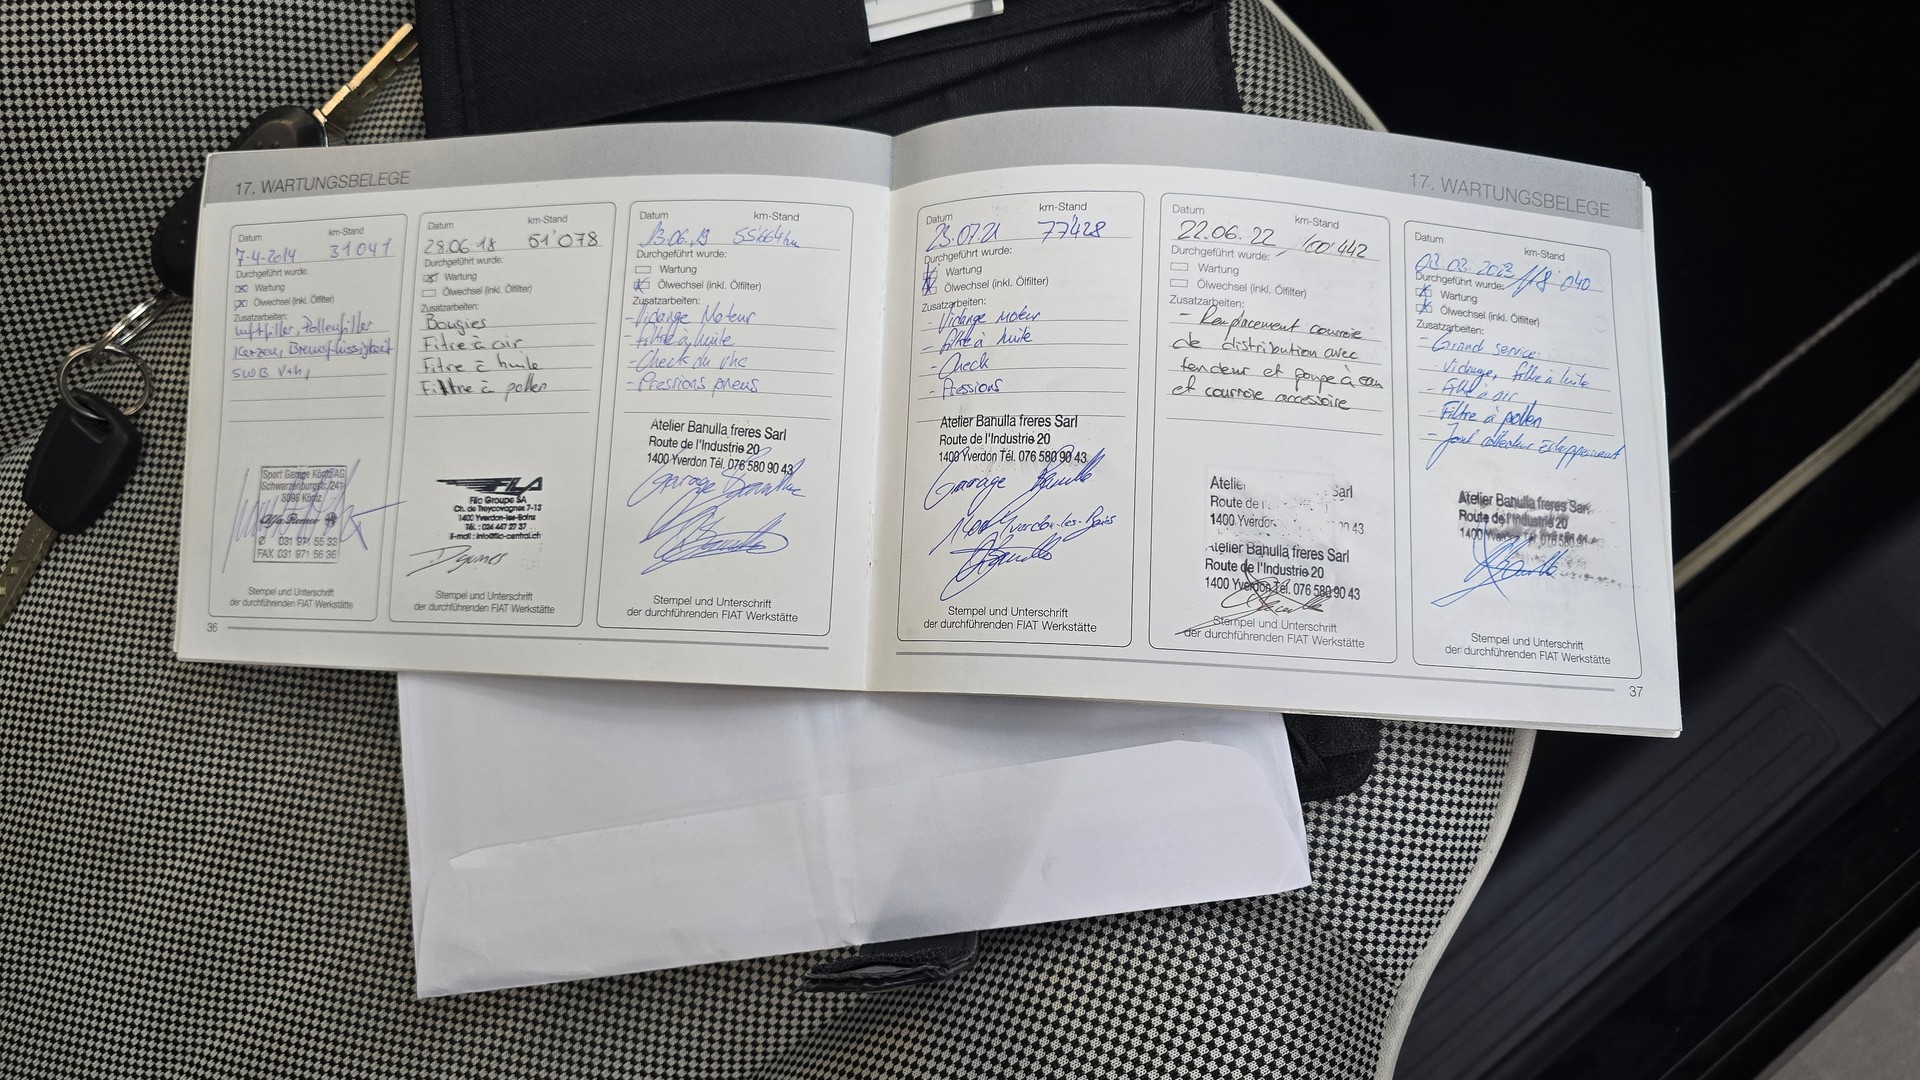 17. WARTUNGSBELEGE
Datum km-Stand
7-4-2014 31041
Durchgeführt wurde:
Wartung
Ölwechsel (inkl. Ölfilter)
Zusatzarbeiten:
Luftfilter, Pollenfilter
Kerzen, Bremsflüssigkeit
SWB V+h,
Sport Garage Köniz AG
Schwarzenburgstr. 241
3098 Köniz
Alfa Romeo
031 971 55 33
FAX 031 971 56 36
Stempel und Unterschrift
der durchführenden FIAT Werkstätte
36
Datum km-Stand
28.06.18 51'078
Durchgeführt wurde:
Wartung
Ölwechsel (inkl. Ölfilter)
Zusatzarbeiten:
Bougies
Fitre à air
Fitre à huile
Filtre à pollen
FILA
Fila Groupe SA
Ch. de Treycovagnes 7-13
1400 Yverdon-les-Bains
Tél.: 024 447 27 37
E-mail: info@fila-central.ch
Stempel und Unterschrift
der durchführenden FIAT Werkstätte
Datum km-Stand
13.06.19 55'664km
Durchgeführt wurde:
Wartung
Ölwechsel (inkl. Ölfilter)
Zusatzarbeiten:
- Vidange Moteur
- Filtre à huile
- Check du vhc
- Pressions pneus
Atelier Banulla freres Sarl
Route de l'Industrie 20
1400 Yverdon Tél. 076 580 90 43
Garage Banulla
Stempel und Unterschrift
der durchführenden FIAT Werkstätte
17. WARTUNGSBELEGE
Datum km-Stand
23.07.21 77'428
Durchgeführt wurde:
Wartung
Ölwechsel (inkl. Ölfilter)
Zusatzarbeiten:
- Vidange Moteur
- Filtre à huile
- Check
- Pressions
Atelier Banulla freres Sarl
Route de l'Industrie 20
1400 Yverdon Tél. 076 580 90 43
Garage Banulla
1400 Yverdon-les-Bains
Banulla
Stempel und Unterschrift
der durchführenden FIAT Werkstätte
Datum km-Stand
22.06.22 100'442
Durchgeführt wurde:
Wartung
Ölwechsel (inkl. Ölfilter)
Zusatzarbeiten:
- Remplacement courroie
de distribution avec
tendeur et pompe à eau
et courroie accessoire
Atelier Sarl
Route de l
1400 Yverdon 0 43
Atelier Banulla freres Sarl
Route de l'Industrie 20
1400 Yverdon Tél. 076 580 90 43
Stempel und Unterschrift
der durchführenden FIAT Werkstätte
Datum km-Stand
03.03.2023 118'040
Durchgeführt wurde:
Wartung
Ölwechsel (inkl. Ölfilter)
Zusatzarbeiten:
- Grand service:
- Vidange, filtre à huile
- Filtre à air
- Filtre à pollen
- Joint collecteur échappement
Atelier Banulla freres Sarl
Route de l'Industrie 20
1400 Yverdon Tél. 076 580
Stempel und Unterschrift
der durchführenden FIAT Werkstätte
37